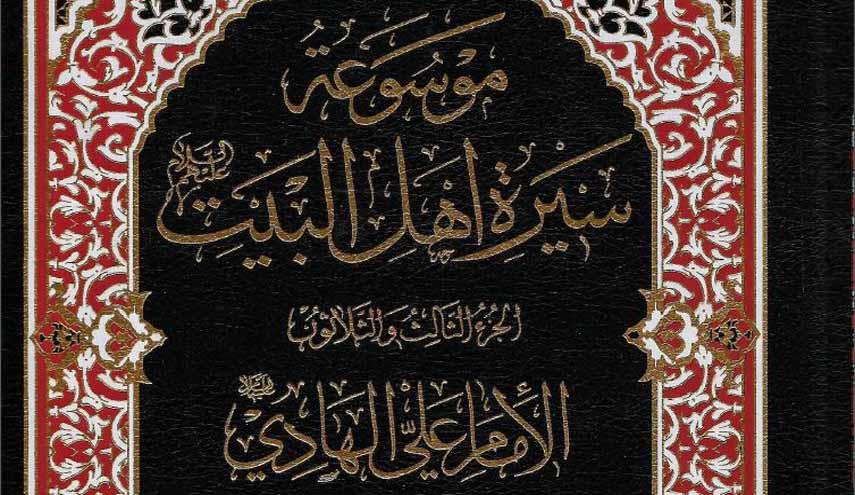 مَوْسُوعَةُ
سِيرَةِ اَهْلِ الْبَيْتِ عليهم السلام
الجُزءُ الثَّالِثُ وَالثَّلاثُونَ
الإِمَامُ عَلِيٌّ الهَادِيْ عليه السلام